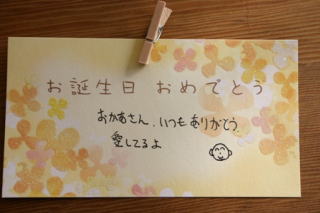 お誕生日 おめでとう
おかあさん、いつもありがとう
愛してるよ